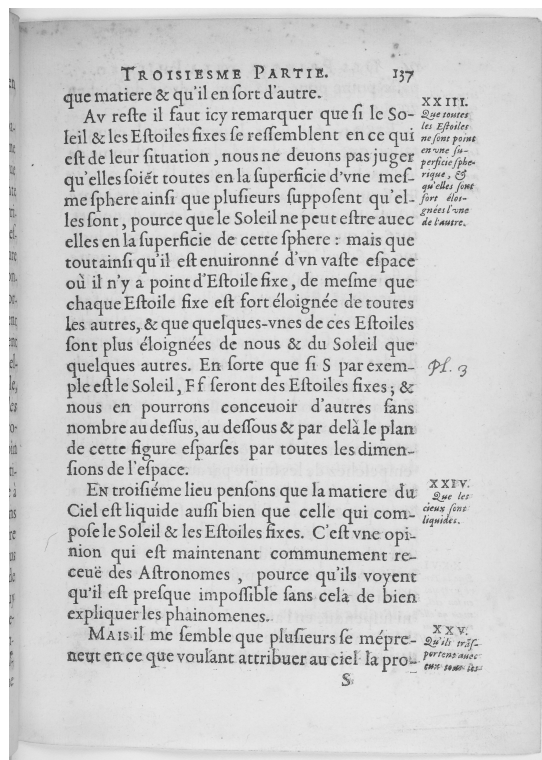 TROISIESME PARTIE. 137
que matiere & qu'il en sort d'autre.
AV reste il faut icy remarquer que si le So-
leil & les Estoiles fixes se ressemblent en ce qui
est de leur situation, nous ne deuons pas juger
qu'elles soiẽt toutes en la superficie d'vne mes-
me sphere ainsi que plusieurs supposent qu'el-
les sont, pource que le Soleil ne peut estre auec
elles en la superficie de cette sphere : mais que
tout ainsi qu'il est enuironné d'vn vaste espace
où il n'y a point d'Estoile fixe, de mesme que
chaque Estoile fixe est fort éloignée de toutes
les autres, & que quelques-vnes de ces Estoiles
sont plus éloignées de nous & du Soleil que
quelques autres. En sorte que si S par exem-
ple est le Soleil, F f seront des Estoiles fixes ; &
nous en pourrons conceuoir d'autres sans
nombre au dessus, au dessous & par delà le plan
de cette figure esparses par toutes les dimen-
sions de l'espace.
EN troisiéme lieu pensons que la matiere du
Ciel est liquide aussi bien que celle qui com-
pose le Soleil & les Estoiles fixes. C'est vne opi-
nion qui est maintenant communement re-
ceuë des Astronomes, pource qu'ils voyent
qu'il est presque impossible sans cela de bien
expliquer les phainomenes.
MAIS il me semble que plusieurs se mépre-
nent en ce que voulant attribuer au ciel la pro-
S
XXIII.
Que toutes
les Estoiles
ne sont point
en vne su-
perficie sphe-
rique, &
qu'elles sont
fort éloi-
gnées l'vne
de l'autre.
Pl. 3
XXIV.
Que les
cieux sont
liquides.
XXV.
Qu'ils trãs-
portent auec
eux tous les